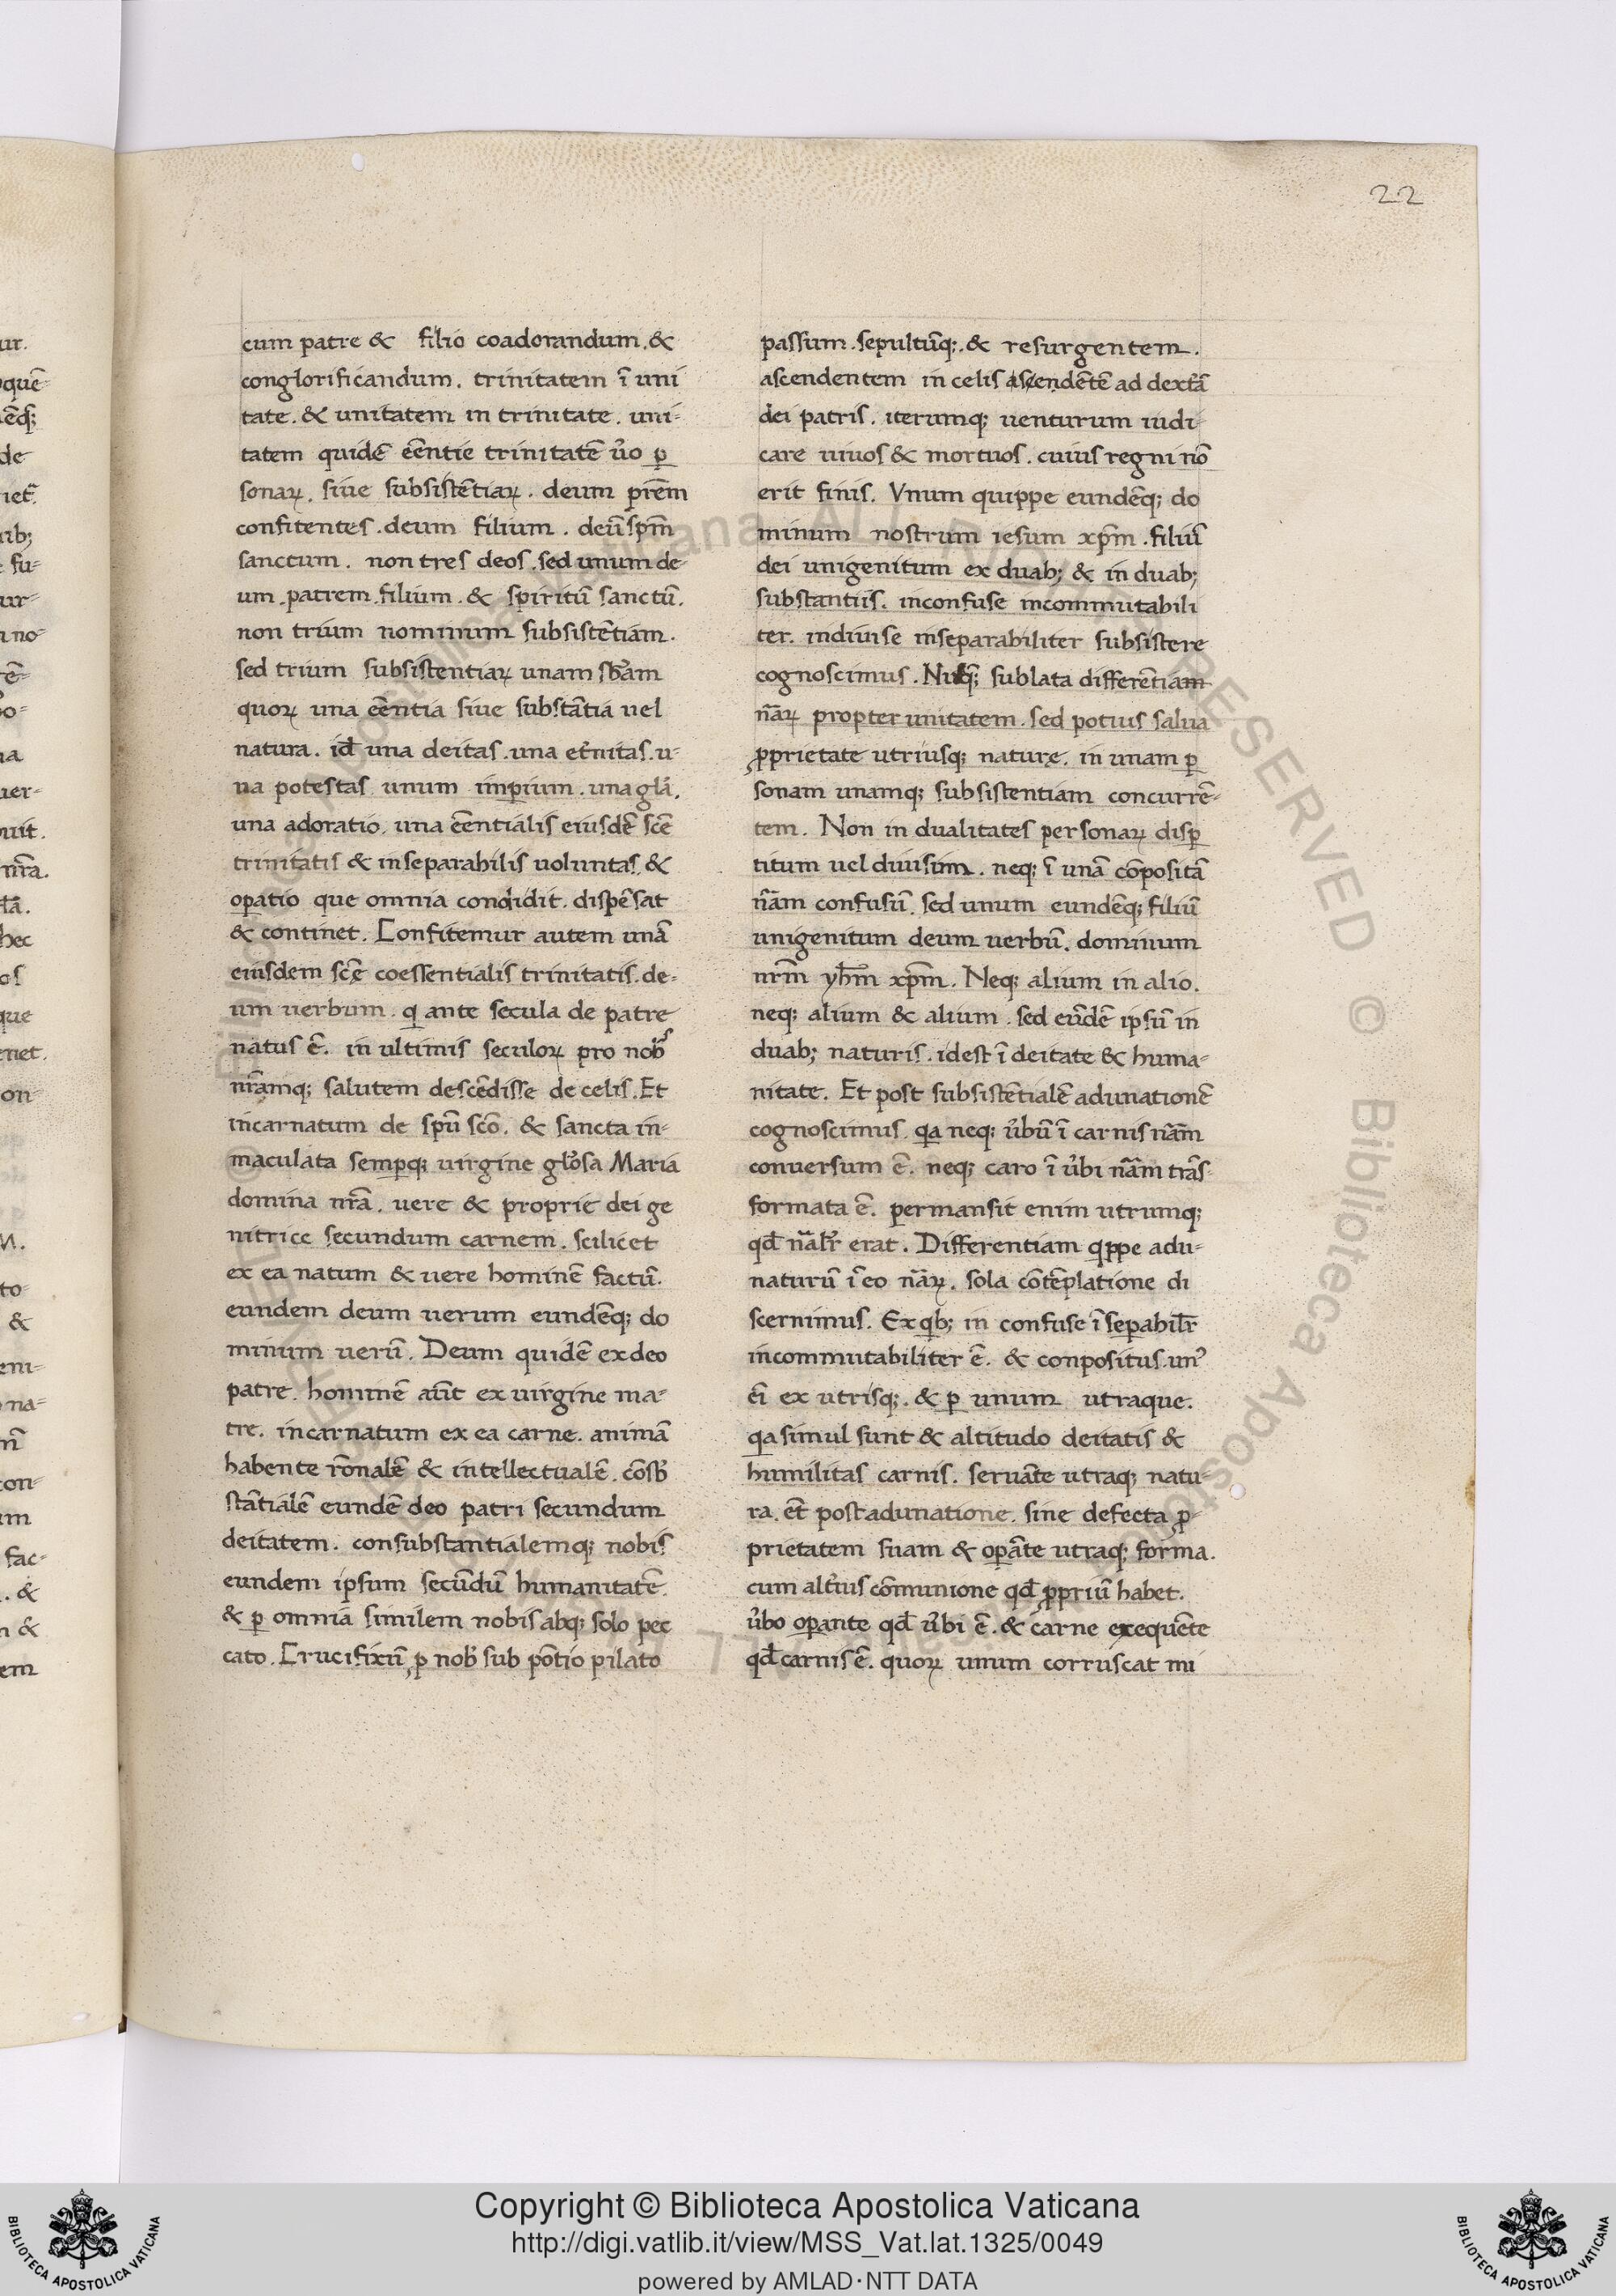 22
cum patre & filio coadorandum. &
conglorificandum. trinitatem ī uni
tate. & unitatem in trinitate. uni-
tatem quidē eēntie trinitatē u̓o ꝑ
sonaꝝ. siue subsistētiaꝝ. deum pr̄em
confitentes. deum filium. deū sp̄m
sanctum. non tres deos. sed unum de-
um. patrem. filium. & spiritū sanctū.
non trium nominum subsistētiam.
sed trium subsistentiaꝝ unam sb̓am
quoꝝ una eēntia siue substātia uel
natura. id̄ una deitas. una et̓nitas. u-
na potestas unum imꝑium. una gl̓a.
una adoratio. una eēntialis eiusdē sc̄e
trinitatis & inseparabilis uoluntas. &
oꝑatio que omnia condidit. dispēsat
& continet. Confitemur autem unā
eiusdem sc̄ę coessentialis trinitatis. de-
um uerbum. q ante secula de patre
natus ē. in ultimis seculoꝝ pro nob̓
nr̄amqꝫ salutem descēdisse de celis. Et
incarnatum de spū sc̄o. & sancta in-
maculata semꝑqꝫ uirgine gl̓osa Maria
domina nr̄a. uere & proprie dei ge
nitrice secundum carnem. scilicet
ex ea natum & uere hominē factū.
eundem deum uerum eundēqꝫ do
minum uerū. Deum quidē ex deo
patre. hominē aūt ex uirgine ma-
tre. incarnatum ex ea carne. animā
habente rōnalē & intellectualē. cōsb̓
stātialē eundē deo patri secundum
deitatem. consubstantialemqꝫ nobis
eundem ipsum secūdū humanitatē.
& ꝑ omnia similem nobis absqꝫ solo pec
cato. Crucifixū ꝓ nob̓ sub pōtio pilato
passum. sepultūqꝫ. & resurgentem.
ascendentem in celis ascendētē ad dext̓ā
dei patris. iterumqꝫ uenturum iudi-
care uiuos & mortuos. cuius regni nō
erit finis. Vnum quippe eundēqꝫ do
minum nostrum iesum xp̄m. filiū
dei unigenitum ex duabꝫ & in duabꝫ
substantiis. inconfuse incommutabili
ter. indiuise inseparabiliter subsistere
cognoscimus. sublata differētiam
nāꝝ propter unitatem. sed potius salua
ꝓprietate utriusqꝫ nature. in unam ꝑ
sonam unamqꝫ subsistentiam concurrē-
tem. Non in dualitates personaꝝ disꝑ
titum uel diuisum. neqꝫ ī unā cōpositā
nām confusū. sed unum eundēqꝫ filiū
unigenitum deum uerbū. dominum
nrm̄ yhm̄ xp̄m. Neqꝫ alium in alio.
neqꝫ alium & alium. sed eūdē ipsū in
duabꝫ naturis. idest ī deitate & huma-
nitate. Et post subsistētialē adunationē
cognoscimus. qa neqꝫ u̓bū ī carnis nām
conuersum ē. neqꝫ caro ī u̓bi nām trās-
formata ē. permansit enim utrumqꝫ
qd̄ nālr̄ erat. Differentiam qppe adu-
naturū ī eo nāꝝ. sola cōtēplatione di
scernimus. Ex qbꝫ in confuse īseꝑabilr̄
incommutabiliter ē. & conpositus. un᾽
ēi ex utrisqꝫ. & ꝑ unum utraque.
qa simul sunt & altitudo deitatis &
humilitas carnis. seruāte utraqꝫ natu-
ra. ēt post adunatione. sine defecta ꝓ-
prietatem suam & oꝑāte utraqꝫ forma.
cum alt̓ius cōmunione qd̄ ꝓpriū habet.
u̓bo oꝑante qd̄ u̓bi ē. & carne exequēte
qd̄ carnis ē. quoꝝ unum corruscat mi
Copyright © Biblioteca Apostolica Vaticana
http://digi.vatlib.it/view/MSS_Vat.lat.1325/0049
powered by AMLAD·NTT DATA
BIBLIOTECA APOSTOLICA VATICANA
BIBLIOTECA APOSTOLICA VATICANA